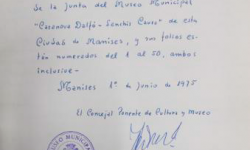 de la Junta del Museo Municipal
"Casanova Dalfó - Sanchis Causa" de esta
Ciudad de Manises, y sus folios es-
tán numerados del 1 al 50, ambos
inclusive -
Manises 1º de junio de 1975
El Concejal Ponente de Cultura y Museo
MUNICIPAL